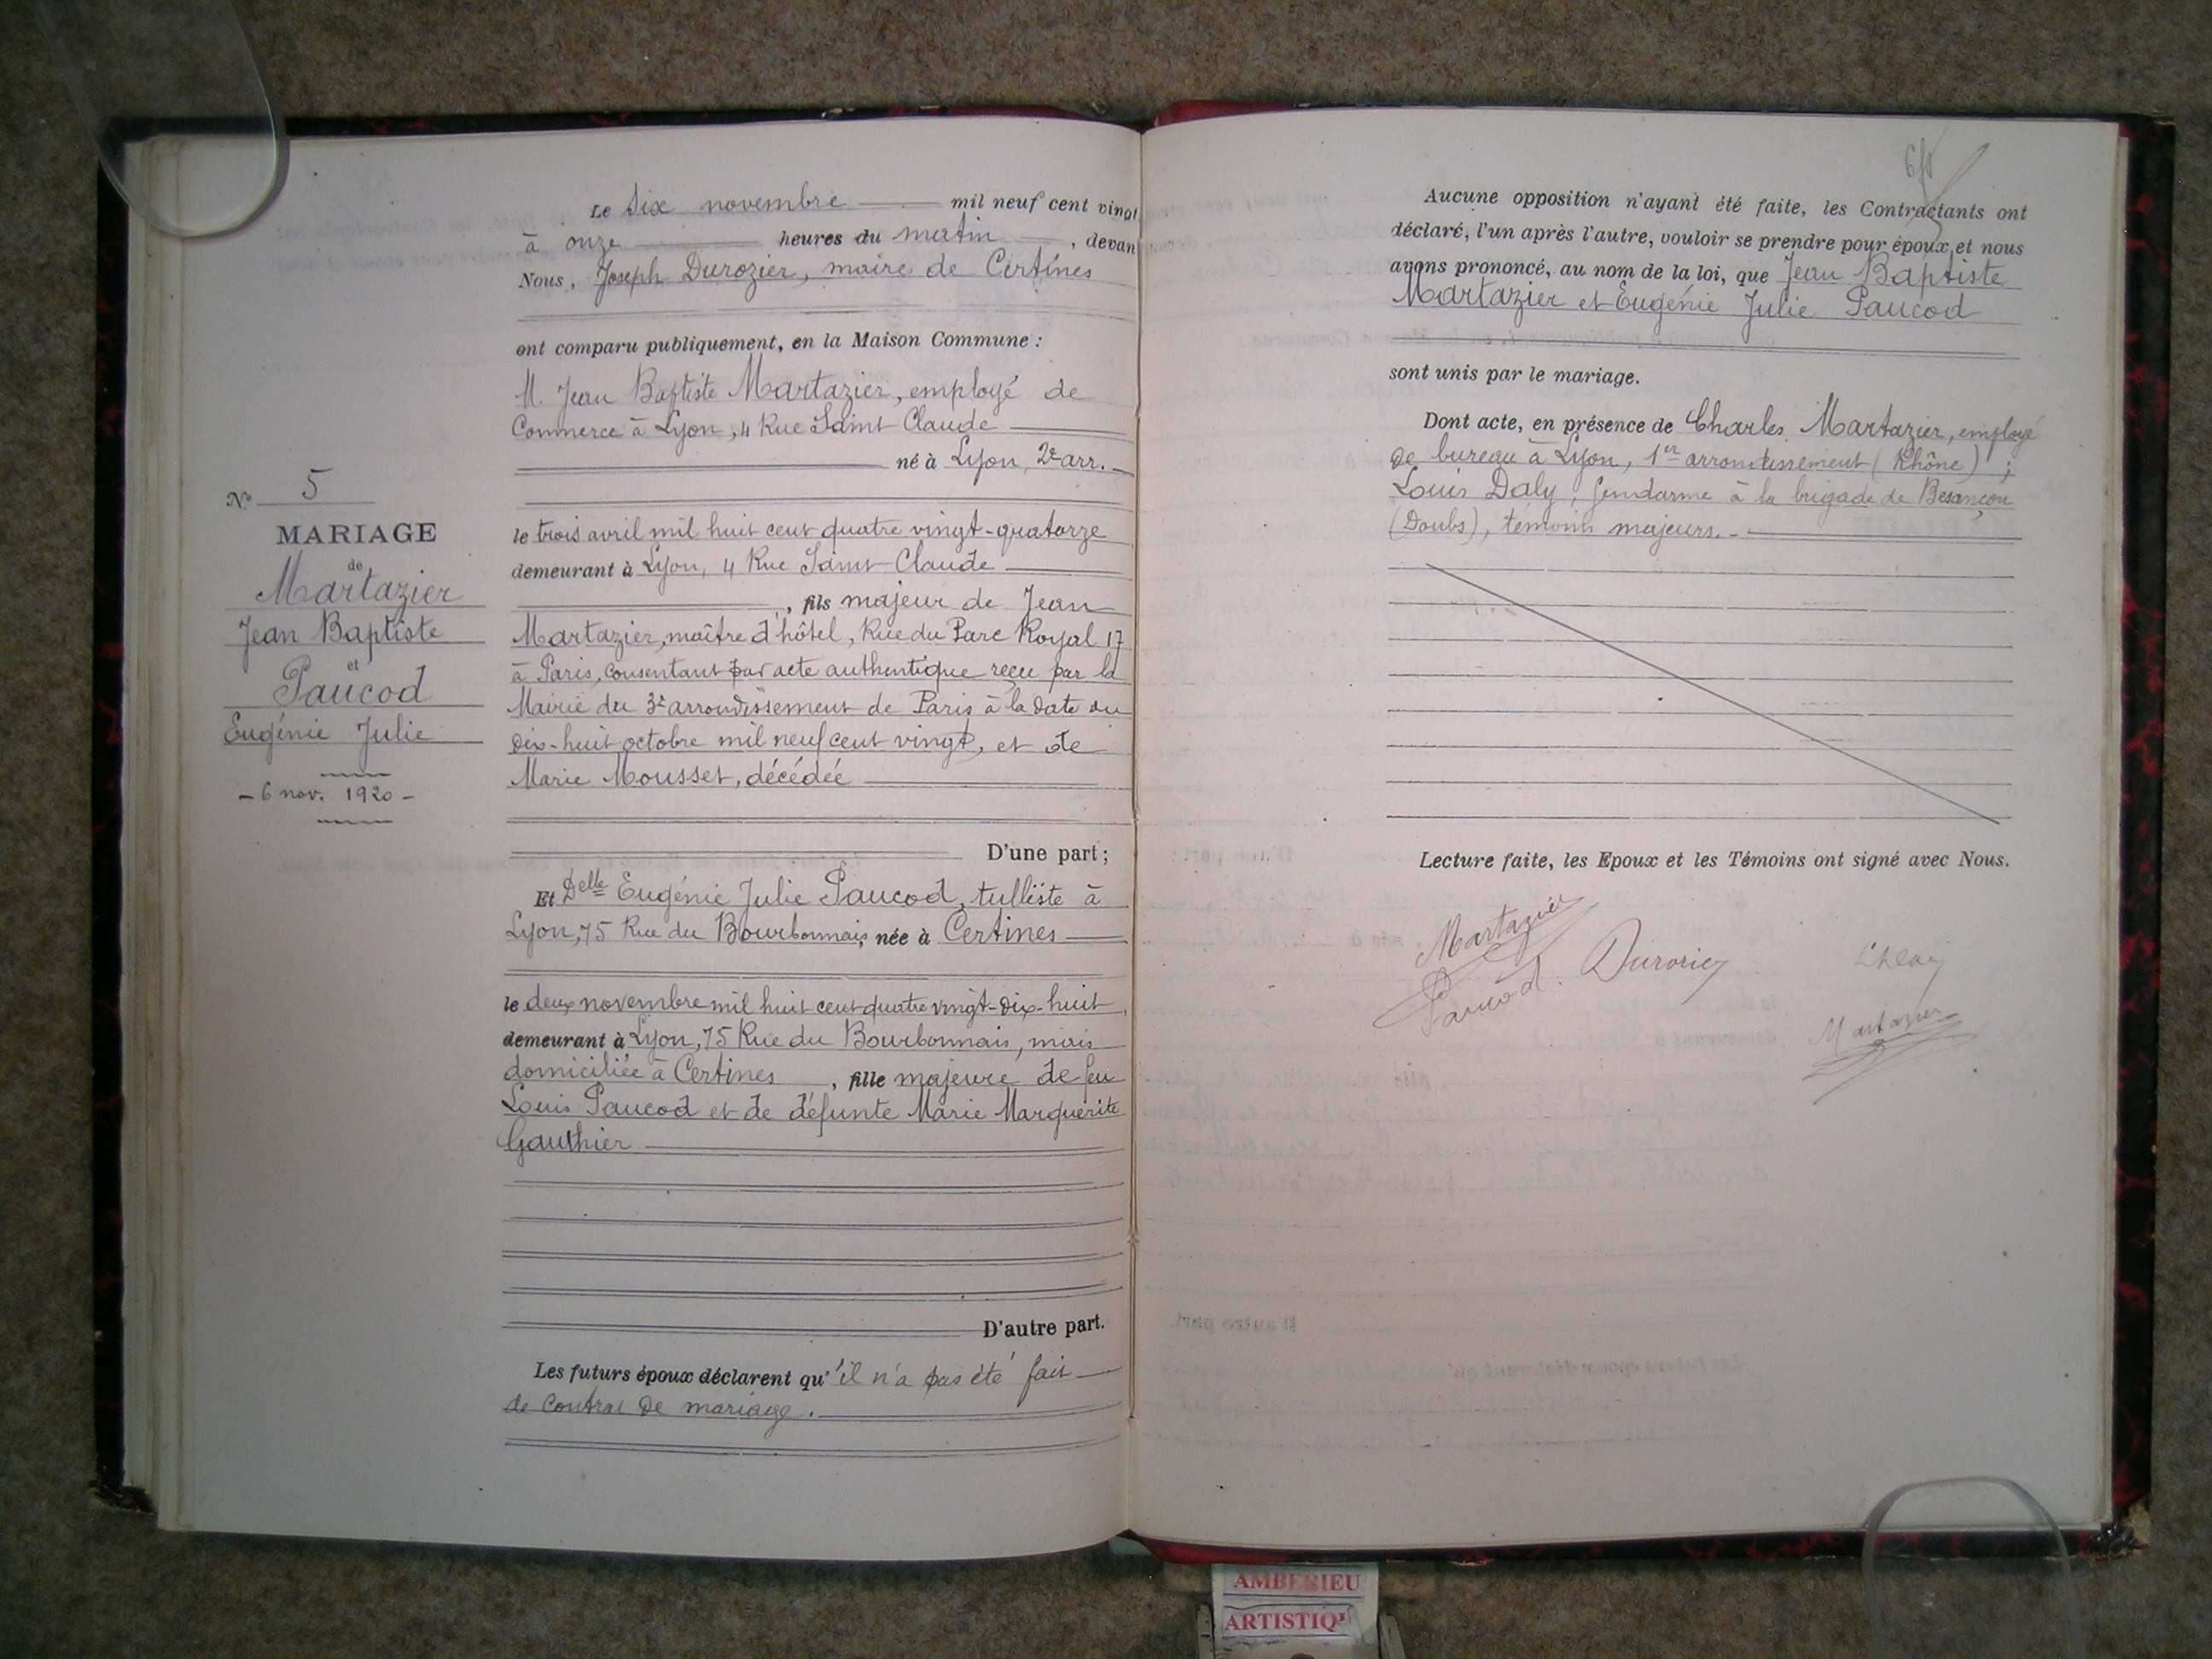 Le six novembre mil neuf cent vingt
à onze heures du matin, devan
Nous, Joseph Durozier, maire de Certines
ont comparu publiquement, en la Maison Commune :
M. Jean Baptiste Martazier, employé de
Commerce à Lyon, 4 Rue Saint Claude
né à Lyon, 2e arr.
le trois avril mil huit cent quatre vingt-quatorze
demeurant à Lyon, 4 Rue Saint Claude
, fils majeur de Jean
Martazier, maître d'hôtel, Rue du Parc Royal 17
à Paris, consentant par acte authentique reçu par la
Mairie du 3e arrondissement de Paris à la date du
dix-huit octobre mil neuf cent vingt, et de
Marie Mousset, décédée
D'une part ;
Et Delle Eugénie Julie Paucod, tulliste à
Lyon, 75 Rue du Bourbonnais, née à Certines
le deux novembre mil huit cent quatre vingt-dix-huit
demeurant à Lyon, 75 Rue du Bourbonnais, mais
domiciliée à Certines, fille majeure de feu
Louis Paucod et de défunte Marie Marguerite
Gauthier
D'autre part.
Les futurs époux déclarent qu'il n'a pas été fait
de contrat de mariage.
N° 5
MARIAGE
de
Martazier
Jean Baptiste
et
Paucod
Eugénie Julie
- 6 nov. 1920 -
Aucune opposition n'ayant été faite, les Contractants ont
déclaré, l'un après l'autre, vouloir se prendre pour époux, et nous
avons prononcé, au nom de la loi, que Jean Baptiste
Martazier et Eugénie Julie Paucod
sont unis par le mariage.
Dont acte, en présence de Charles Martazier, employé
de bureau à Lyon, 1er arrondissement (Rhône) ;
Louis Daly, gendarme à la brigade de Besançon
(Doubs), témoins majeurs. -
Lecture faite, les Epoux et les Témoins ont signé avec Nous.
Martazier
Paucod.
Durozier
Martazier
AMBERIEU
ARTISTIQ